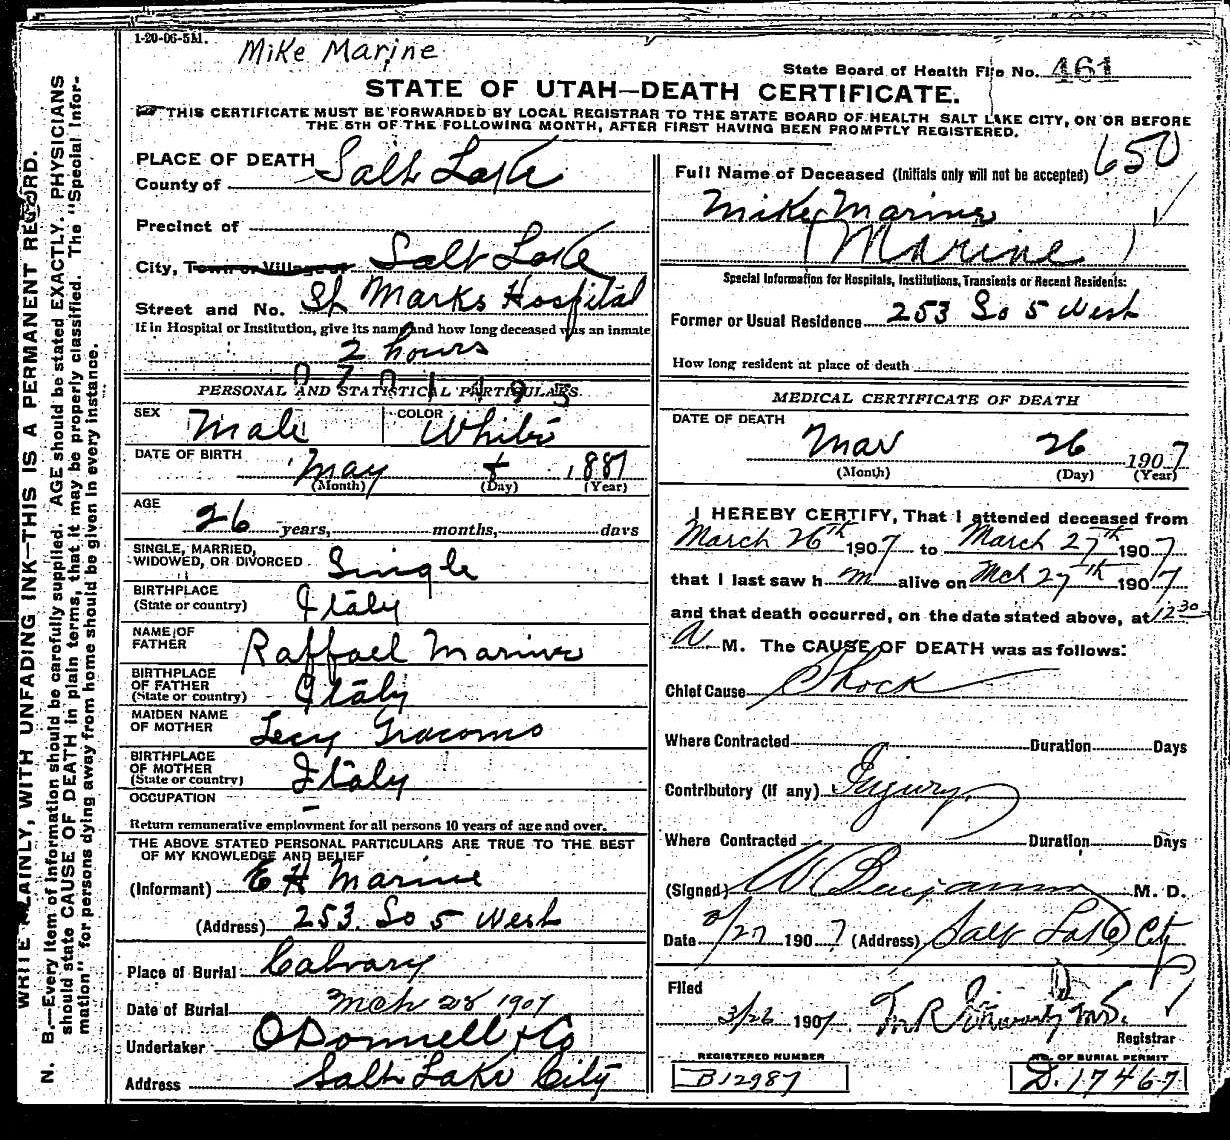 1-20-06-5M.
Mike Marine
State Board of Health File No. 461
STATE OF UTAH—DEATH CERTIFICATE.
THIS CERTIFICATE MUST BE FORWARDED BY LOCAL REGISTRAR TO THE STATE BOARD OF HEALTH SALT LAKE CITY, ON OR BEFORE
THE 5TH OF THE FOLLOWING MONTH, AFTER FIRST HAVING BEEN PROMPTLY REGISTERED.
WRITE PLAINLY, WITH UNFADING INK—THIS IS A PERMANENT RECORD.
N. B.—Every item of information should be carefully supplied. AGE should be stated EXACTLY. PHYSICIANS
should state CAUSE OF DEATH in plain terms, that it may be properly classified. The "Special Infor-
mation" for persons dying away from home should be given in every instance.
PLACE OF DEATH
County of Salt Lake
Precinct of
City, Town or Village of Salt Lake
Street and No. St Marks Hospital
If in Hospital or Institution, give its name and how long deceased was an inmate
2 hours
PERSONAL AND STATISTICAL PARTICULARS
SEX Male COLOR White
DATE OF BIRTH May 1887
(Month) (Day) (Year)
AGE 26 years, months, days
SINGLE, MARRIED,
WIDOWED, OR DIVORCED Single
BIRTHPLACE
(State or country) Italy
NAME OF
FATHER Raffael Marine
BIRTHPLACE
OF FATHER
(State or country) Italy
MAIDEN NAME
OF MOTHER Lecy Giacomo
BIRTHPLACE
OF MOTHER
(State or country) Italy
OCCUPATION –
Return remunerative employment for all persons 10 years of age and over.
THE ABOVE STATED PERSONAL PARTICULARS ARE TRUE TO THE BEST
OF MY KNOWLEDGE AND BELIEF
(Informant) E H Marine
(Address) 253. So 5 West
Place of Burial Calvary
Date of Burial Mch 28 1907
Undertaker O'Donnell & Co
Address Salt Lake City
650
Full Name of Deceased (Initials only will not be accepted)
Mike Marine
(Marine)
Special Information for Hospitals, Institutions, Transients or Recent Residents:
Former or Usual Residence 253 So 5 West
How long resident at place of death
MEDICAL CERTIFICATE OF DEATH
DATE OF DEATH
Mar 26 1907
(Month) (Day) (Year)
I HEREBY CERTIFY, That I attended deceased from
March 26th 1907 to March 27th 1907
that I last saw h m alive on Mch 27th 1907
and that death occurred, on the date stated above, at 12 30
A M. The CAUSE OF DEATH was as follows:
Chief Cause Shock
Where Contracted Duration Days
Contributory (if any) Injury
Where Contracted Duration Days
(Signed) W Benjamin M. D.
Date 3/27 1907 (Address) Salt Lake City
Filed
3/26 1907
Registrar
REGISTERED NUMBER
B12987
NO. OF BURIAL PERMIT
D. 17467